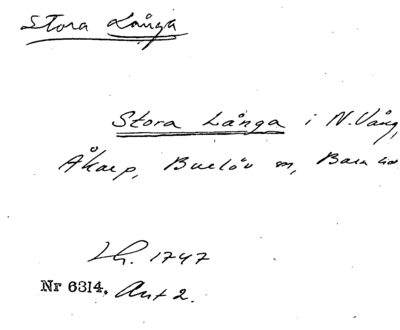 Stora Långa
Stora Långa i N. Vång,
Åkarp, Burlöv sn, Bara hd.
Lh. 1747
Nr 6314. Akt 2.